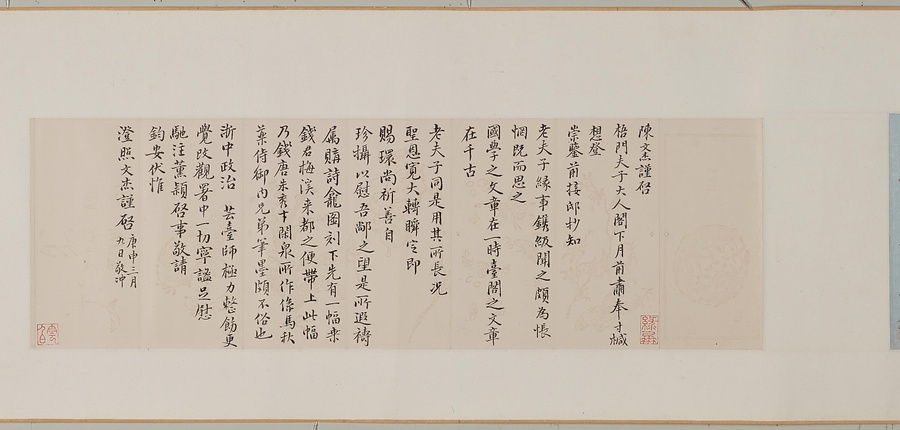 陳文杰謹啓
梧門夫子大人閣下月前肅奉寸緘
想登
崇鑒前接邸抄知
老夫子緣事鐫級聞之頗為悵
惘既而思之
國學之文章在一時臺閣之文章
在千古
老夫子同是用其所長況
聖恩寬大轉瞬定即
賜環尚祈善自
珍攝以慰吾鄰之望是所遐禱
屬購詩龕圖刻下先有一幅樂
錢君梅溪来都之便帶上此幅
乃錢唐朱秀才閑泉所作係馬秋
葯侍御內兄弟筆墨頗不俗也
浙中政治 芸臺師極力整飭更
覺改觀署中一切寧謐足慰
馳注董穎啓事敬請
鈞安伏惟
澄照文杰謹啓 庚申三月
九日敬沖